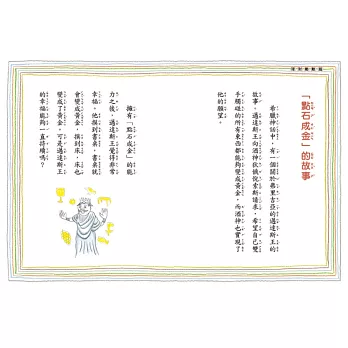 「點石成金」的故事
希臘神話中，有一個關於弗里吉亞的邁達斯王的
故事。邁達斯王向酒神狄俄倪索斯請求，希望自己雙
手觸碰的所有東西都能夠變成黃金，而酒神也實現了
他的願望。
擁有「點石成金」的能
力之後，邁達斯王覺得非常
幸福。他摸到書桌，書桌就
會變成黃金，摸到床，床也
變成了黃金。可是邁達斯王
的幸福能夠一直持續嗎？